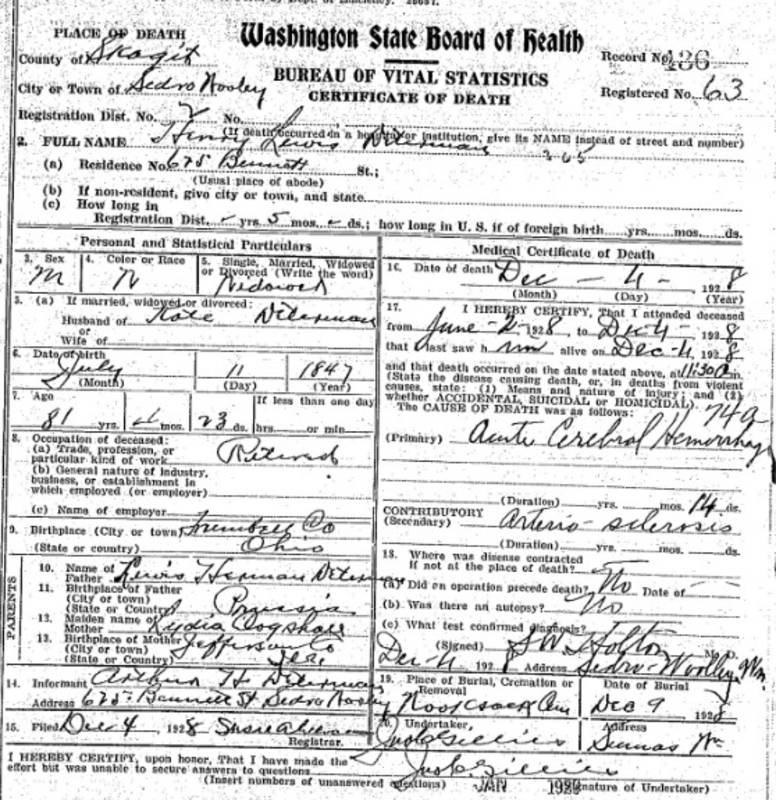 PLACE OF DEATH
Washington State Board of Health
County of Skagit
Record No. 436
BUREAU OF VITAL STATISTICS
City or Town of Sedro Wooley
CERTIFICATE OF DEATH
Registered No. 63
Registration Dist. No. 2 No.
(If death occurred in a hospital or institution, give its NAME instead of street and number)
2. FULL NAME Henry Lewis Diterman
(a) Residence No. 675 Bennett St.;
(Usual place of abode)
(b) If non-resident, give city or town, and state
(c) How long in
Registration Dist. - yrs. 5 mos. - ds.; how long in U. S. if of foreign birth yrs. mos. ds.
Personal and Statistical Particulars
3. Sex M
4. Color or Race
5. Single, Married, Widowed or Divorced (Write the word) Widowed
5. (a) If married, widowed or divorced:
Husband of Kate Diterman
or
Wife of
6. Date of birth
July 11 1847
(Month) (Day) (Year)
7. Age If less than one day
81 yrs. mos. 23 ds. hrs. or min.
8. Occupation of deceased:
(a) Trade, profession, or
particular kind of work Retired
(b) General nature of industry,
business, or establishment in
which employed (or employer)
(c) Name of employer
9. Birthplace (City or town) Trumbell Co
(State or country) Ohio
PARENTS
10. Name of
Father Lewis Herman Diterman
11. Birthplace of Father
(City or town)
(State or Country) Prussia
12. Maiden name of
Mother Lydia
13. Birthplace of Mother
(City or town) Jefferson Co
(State or Country)
14. Informant Arthur H Diterman
Address 675 Bennett St Sedro Wooley
15. Filed Dec 4 1928
Registrar.
Medical Certificate of Death
16. Date of death Dec - 4 - 1928
(Month) (Day) (Year)
17. I HEREBY CERTIFY, That I attended deceased
from June - 2 - 1928, to Dec 4 - 1928
that I last saw him alive on Dec - 4, 1928
and that death occurred on the date stated above, at 11:30 a.m.
(State the disease causing death, or, in deaths from violent
causes, state: (1) Means and nature of injury; and (2)
whether ACCIDENTAL, SUICIDAL or HOMICIDAL).
The CAUSE OF DEATH was as follows: 74a
(Primary) Acute Cerebral Hemorrhage
(Duration) yrs. mos. 14 ds.
CONTRIBUTORY
(Secondary) Arterio-sclerosis
(Duration) yrs. mos. ds.
18. Where was disease contracted
if not at the place of death?
(a) Did an operation precede death? No Date of
(b) Was there an autopsy? No
(c) What test confirmed diagnosis?
(Signed) M. D.
Dec 4 1928 Address Sedro-Woolley, Wn.
19. Place of Burial, Cremation or
Removal
Date of Burial
Nooksack Cem Dec 9 1928
20. Undertaker, Address
Jno Gillies Sumas Wn
I HEREBY CERTIFY, upon honor, That I have made the
effort but was unable to secure answers to questions
Jno Gillies
(Insert numbers of unanswered questions) JAN 1929 (Signature of Undertaker)